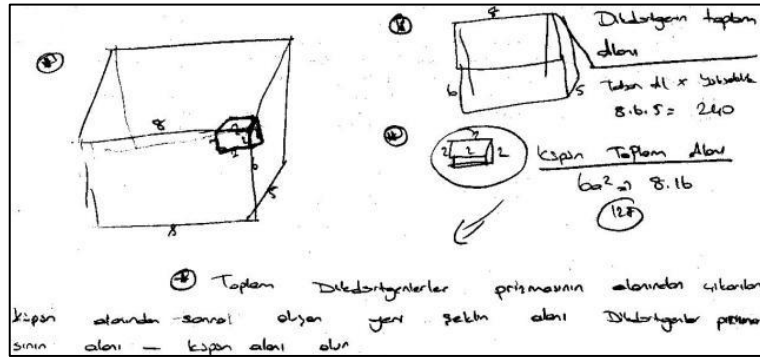 8
8
6
5
8
6
5
Dikdörtgenin toplam
Alanı
Taban Al x Yükseklik
8.6.5 = 240
2
2
2
2
Küpün Toplam Alanı
6a² => 8.16
128
Toplam Dikdörtgenlerler prizmasının alanından çıkarılan
küpün alanından sonra oluşan yeni şeklin alanı Dikdörtgenler prizma
sının alanı — küpün alanı olur